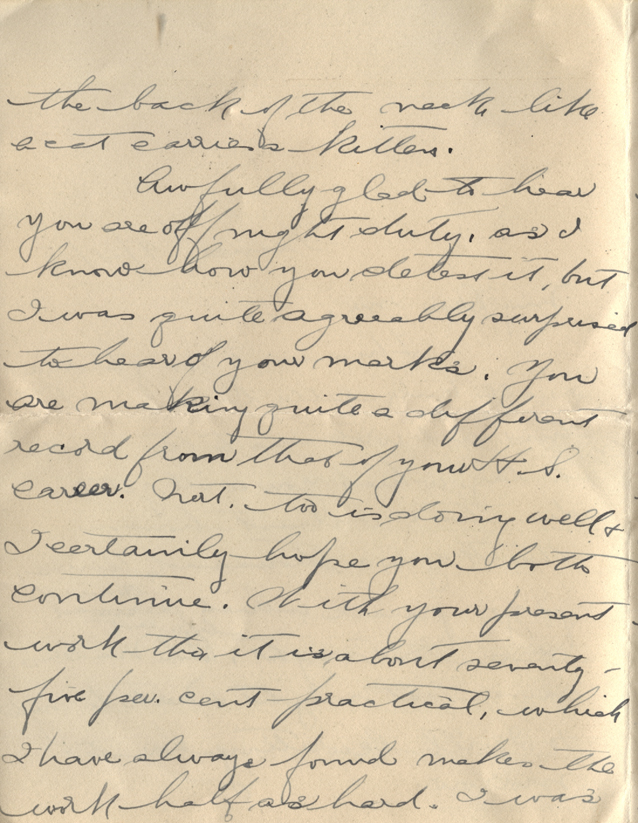 the back of the neck like
a cat carries kitten.
Awfully glad to hear
you are off night duty, as I
know how you detest it, but
I was quite agreeably surprised
to hear of your marks. You
are making quite a different
record from that of your H. S.
career. Nat. too is doing well &
I certainly hope you both
continue. With your present
work tho it is about seventy-
five per. cent practical, which
I have always found makes the
work half as hard. I was